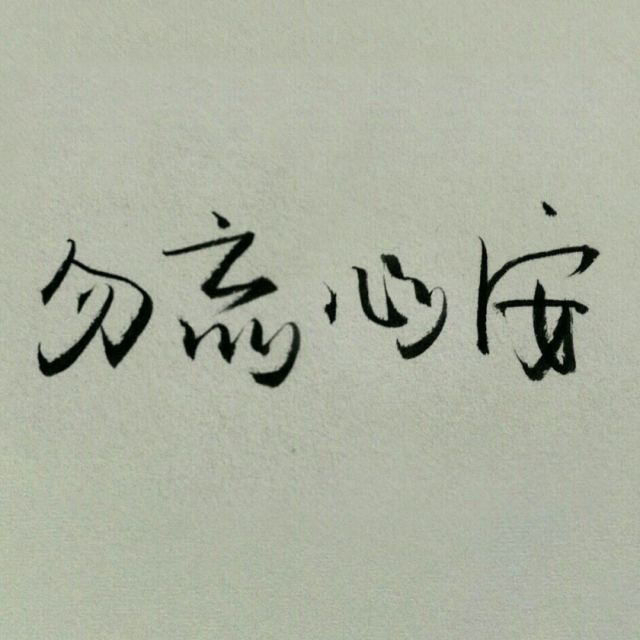 勿忘心安